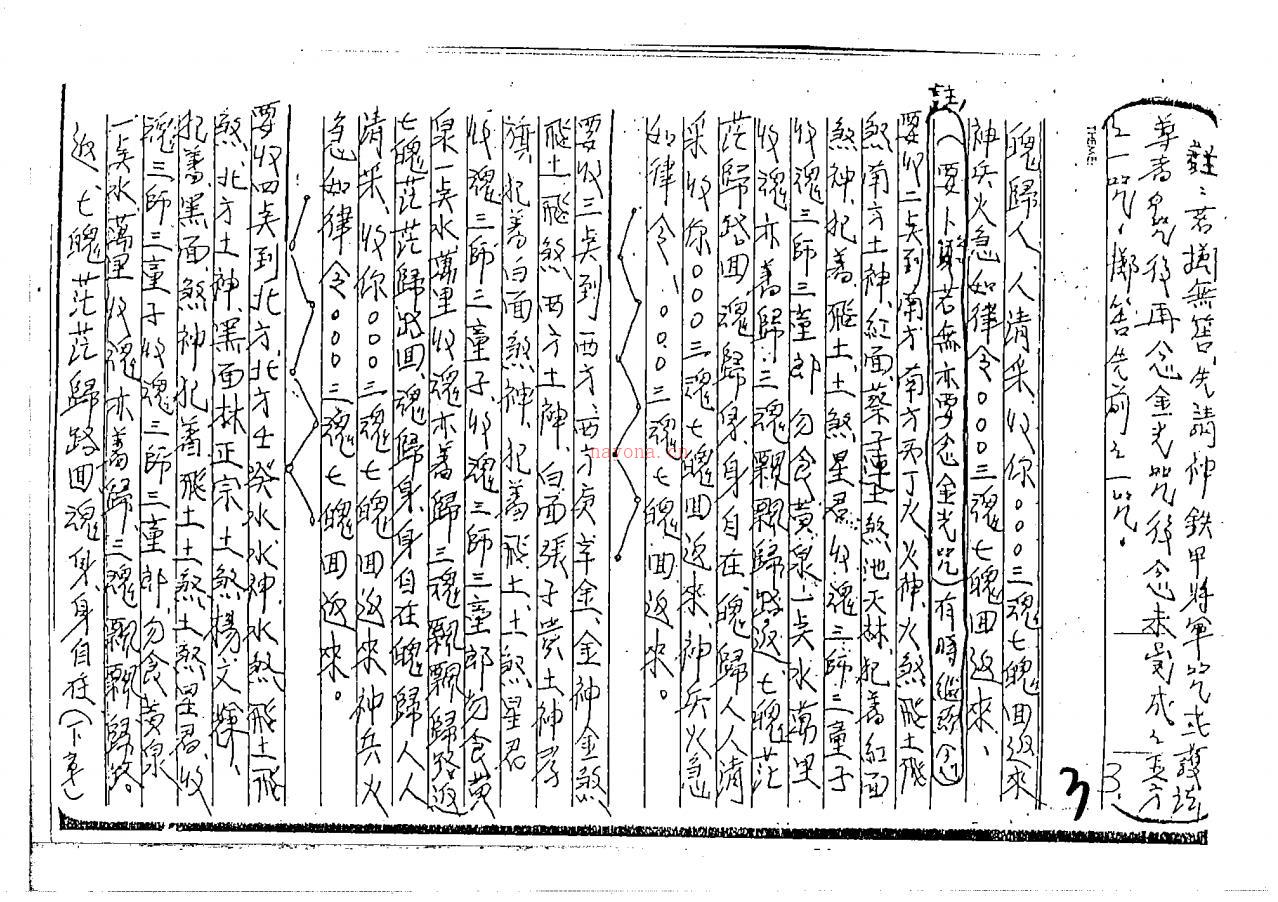 註：若擲無筶，先請神鉄甲將軍咒或護法
尊者咒後再念金光咒後念未完成之五方
之一咒，擲筶先前之一咒。
TEME
3.
3
魄歸人，人清采，收你〇〇〇三魂七魄回返來
神兵火急如律令〇〇〇三魂七魄回返來、
註，
（要卜若無亦要念金光咒）有時繼續念
要收二点到南方，南方丙丁火，火神，火煞飛土飛
煞，南方土神，紅面，蔡子土煞，池天林，犯着紅面
煞神，犯着飛土，土煞星君，收魂三師三童子
收魂三師三童郎，勿食黃泉，一点水萬里
收魂亦着歸，三魂飄飄歸路返，七魄茫
茫歸路回，魂歸身，身自在，魄歸人人清
采，收你〇〇〇三魂七魄回返來，神兵火急
如律令，〇〇〇三魂七魄回返來。
要收三点到西方，西方庚辛金，金神金煞
飛土飛煞，西方土神，白面張子貴，土神李
旗，犯着白面煞神，犯着飛土，土煞星君
收魂三師三童子，收魂三師三童郎勿食黃
泉一点水萬里收魂亦着歸三魂飄飄歸路返
七魄茫茫歸路回，魂歸身，身自在魄歸人人
清采，收你〇〇〇三魂七魄回返來神兵火
急如律令〇〇〇三魂七魄回返來。
要收四点到北方，北方壬癸水，水神，水煞，飛土飛
煞，北方土神，黑面林正宗，土煞楊文輝，
犯着黑面，煞神，犯着飛土，土煞，土煞星君，收
魂三師三童子收魂三師三童郎，勿食黃泉
一点水萬里收魂亦着歸，三魂飄飄歸路。
返，七魄茫茫歸路回魂身，身自在（下
navona.cn